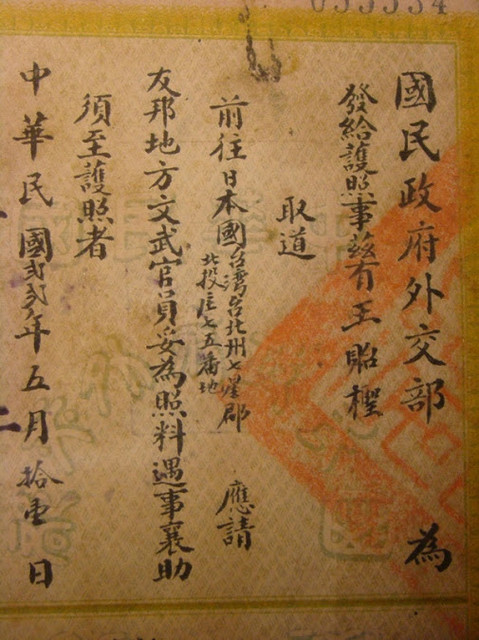 國民政府外交部 為
發給護照事茲有王昭
取道
前往日本國
台灣台北州七星郡
北投庄七五番地
應請
友邦地方文武官員妥為照料遇事襄助
須至護照者
中華民國年五月拾日